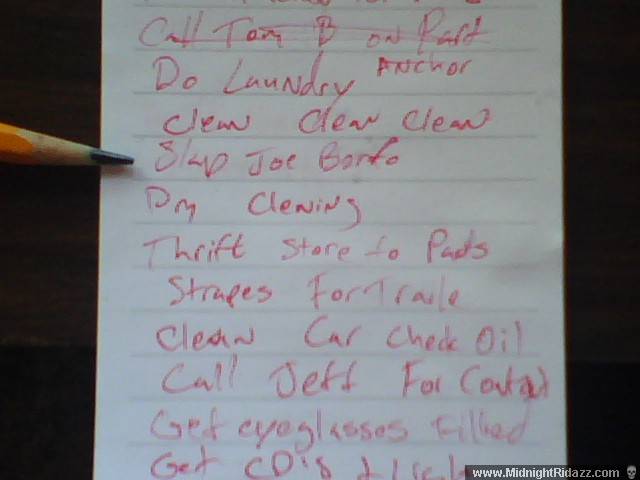 Call Tom B on Part
Do Laundry Anchor
Clean Clean Clean
Slap Joe Borfo
Dry Clening
Thrift Store to Pads
Strapes For Traile
Clean Car Check Oil
Call Jeff For Contact
Get eyeglasses Filled
Get CD's
www.MidnightRidazz.com